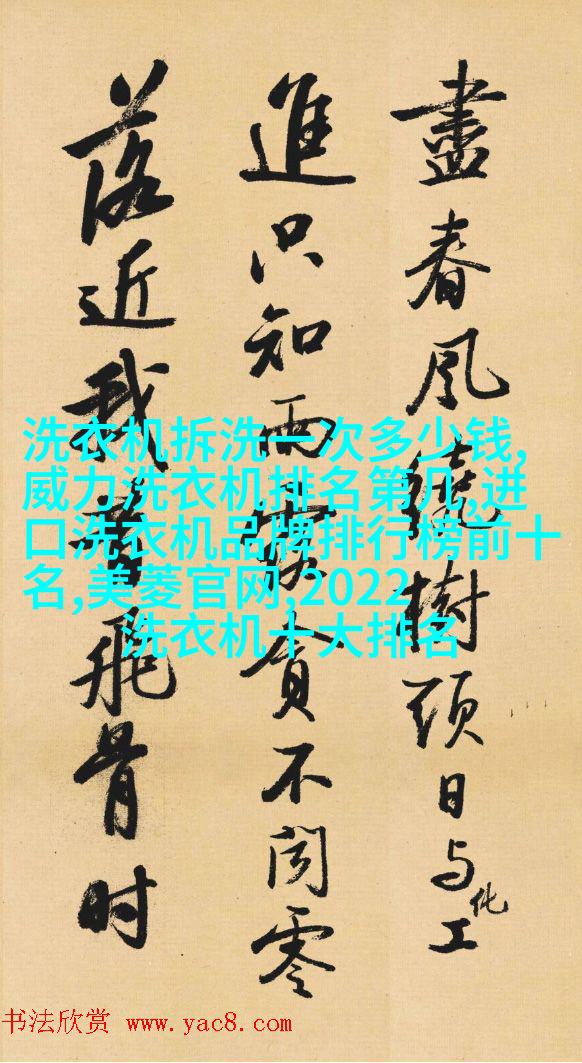 盡春風繞樹頭日与化工
進只知雨露貪不闻零
落近我昔飛骨时
洗衣机拆洗一次多少钱,
威力洗衣机排名第几,进
口洗衣机品牌排行榜前十
名,美菱官网,2022
洗衣机十大排名
书法欣赏 www.yac8.com